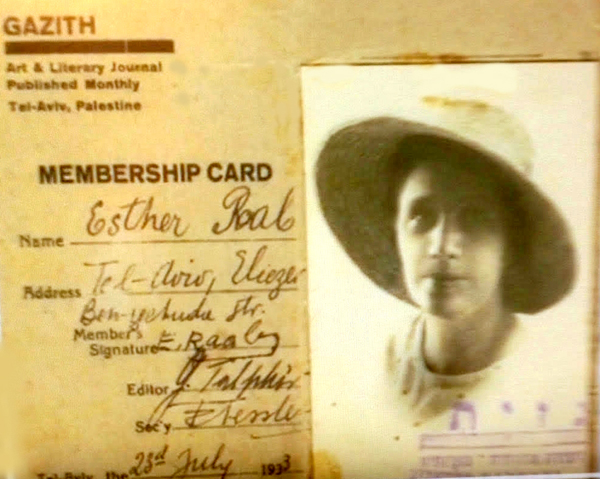 GAZITH
Art & Literary Journal
Published Monthly
Tel-Aviv, Palestine
MEMBERSHIP CARD
Name Esther Raab
Address Tel-Aviv, Eliezer
Ben-yehuda Str.
Member's
Signature E. Raab
Editor J Talphir
Sec'y
Tel-Aviv, the 23rd July 1933
גזית